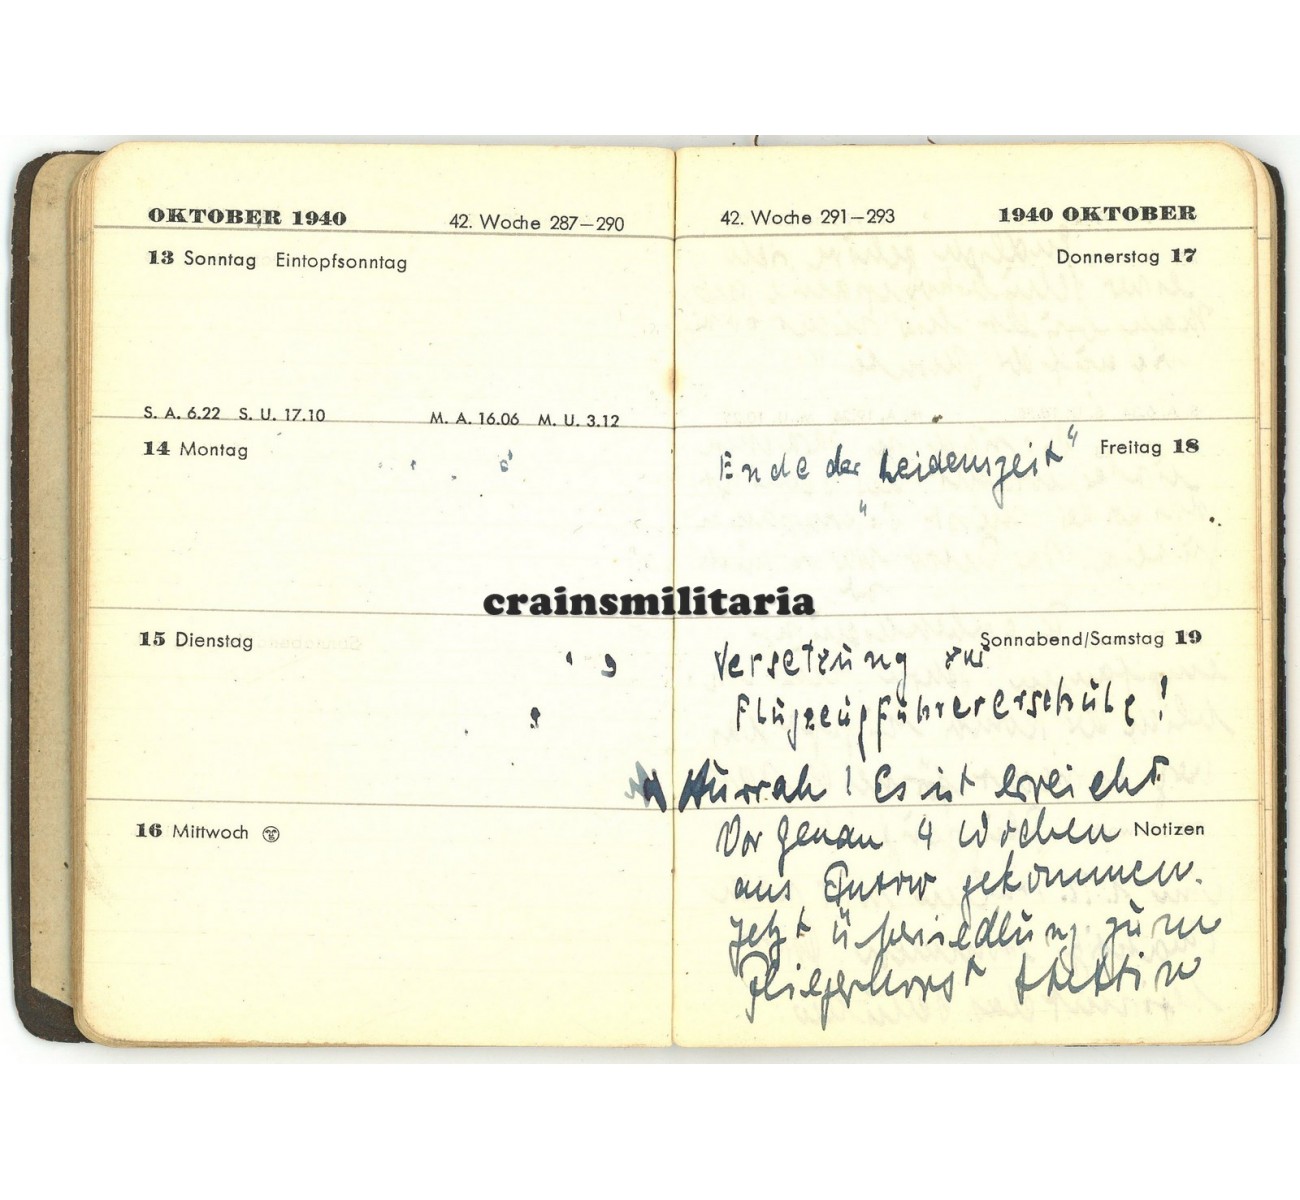 OKTOBER 1940 42. Woche 287–290
13 Sonntag Eintopfsonntag
S. A. 6.22 S. U. 17.10 M. A. 16.06 M. U. 3.12
14 Montag
15 Dienstag
16 Mittwoch
42. Woche 291–293 1940 OKTOBER
Donnerstag 17
Freitag 18
Ende der Leidenszeit"
"
crainsmilitaria
Sonnabend/Samstag 19
Versetzung zur
Flugzeugführererschule!
Hurrah! Es ist erreicht
Notizen
Vor genau 4 Wochen
aus gekommen.
Jetzt zum
Fliegerhorst Stettin